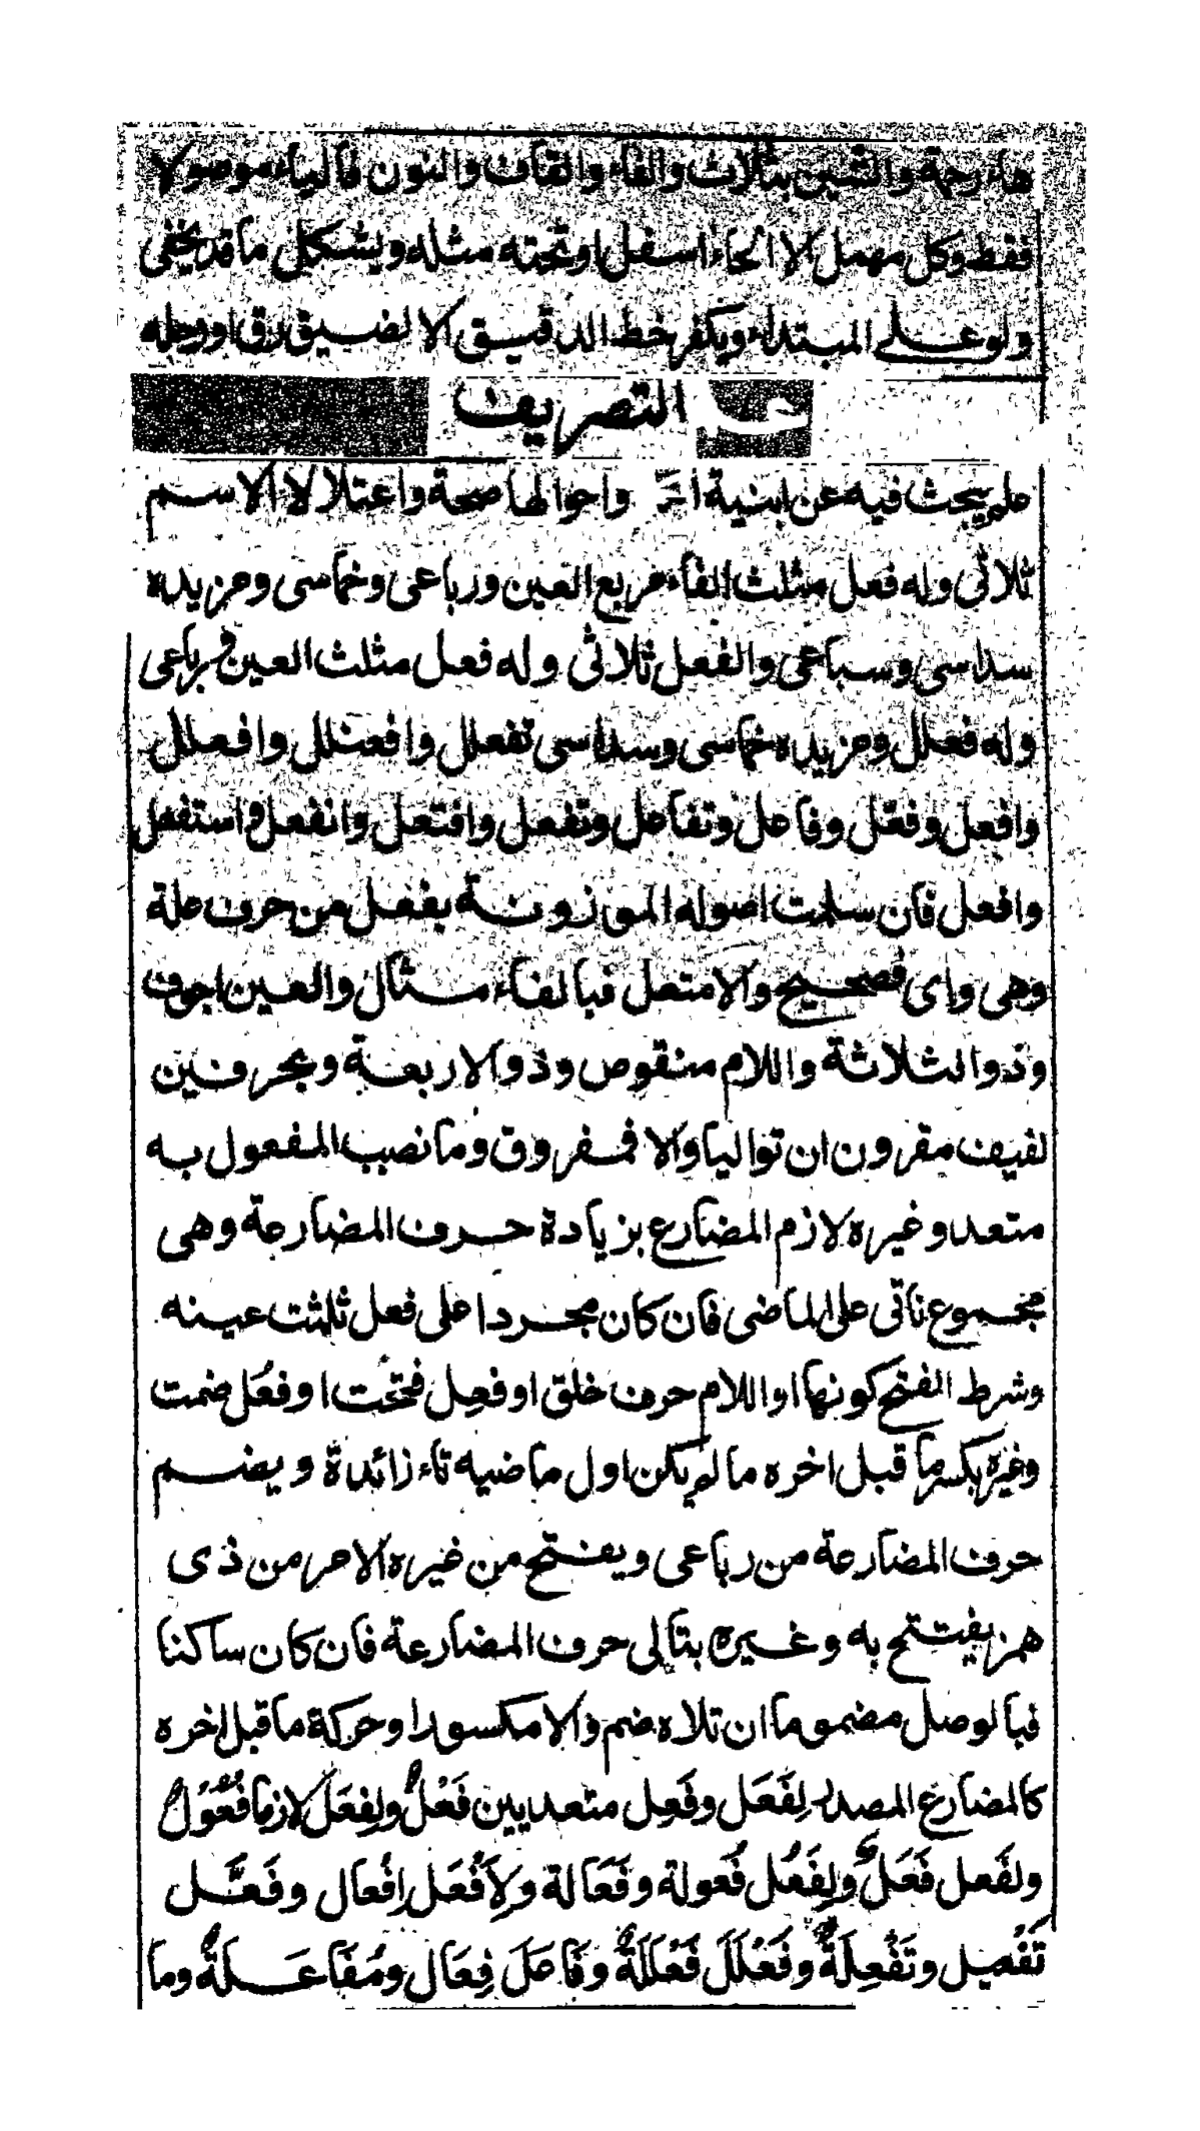 هاء رحمة والشين بثلاث والفاء والقاف والنون فالياء موصولا
فقط وكل مهمل لا الحاء اسفل او تحته مثله ويشكل ما قد يخفى
ولو على المبتداء ويكفر خط الدقيق الا لضيق رق او رحله
التصريف
علم يبحث فيه عن ابنية واحوالها صحة واعتلالا الاسم
ثلاثى وله فعل مثلث الفاء مربع العين ورباعى وخماسى ومزيده
سداسى وسباعى والفعل ثلاثى وله فعل مثلث العين ورباعى
وله فعلل ومزيده خماسى وسداسى تفعلل وافعنلل وافعلل
وافعل وفعّل وفاعل وتفاعل وتفعل وافتعل وانفعل واستفعل
وافعل فان سلمت اصوله الموزونة بفعل من حرف علة
وهى واى فصحيح والا معتل فبالفاء مثال والعين اجوف
وذو الثلاثة واللام منقوص وذو الاربعة وبحرفين
لفيف مقرون ان تواليا والا فمفروق وما نصب المفعول به
متعد وغيره لازم المضارع بزيادة حرف المضارعة وهى
مجموع نأتى على الماضى فان كان مجردا على فعل ثلثت عينه
وشرط الفتح كونها او اللام حرف خلق او فعِل فتحت او فعُل ضمت
وغيره بكسر ما قبل اخره ما لم يكن اول ماضيه تاء زائدة ويضم
حرف المضارعة من رباعى ويفتح من غيره الامر من ذى
همز يفتتح به وغيره بتالى حرف المضارعة فان كان ساكنا
فبالوصل مضموما ان تلاه ضم والا مكسورا وحركة ما قبل اخره
كالمضارع المصدر لِفَعَل وفَعِل متعديين فَعْلٌ ولِفعَل لازما فُعُوْلٌ
ولفَعِل فَعَلٌ ولِفَعُل فُعولة وفَعَالة ولِأَفْعَل إفْعال وفَعَّل
تَفْعيل وتَفْعِلَةٌ وفَعْلَلَ فَعْلَلَةٌ وفَاعَلَ فِعَال ومُفَاعَلةٌ وما